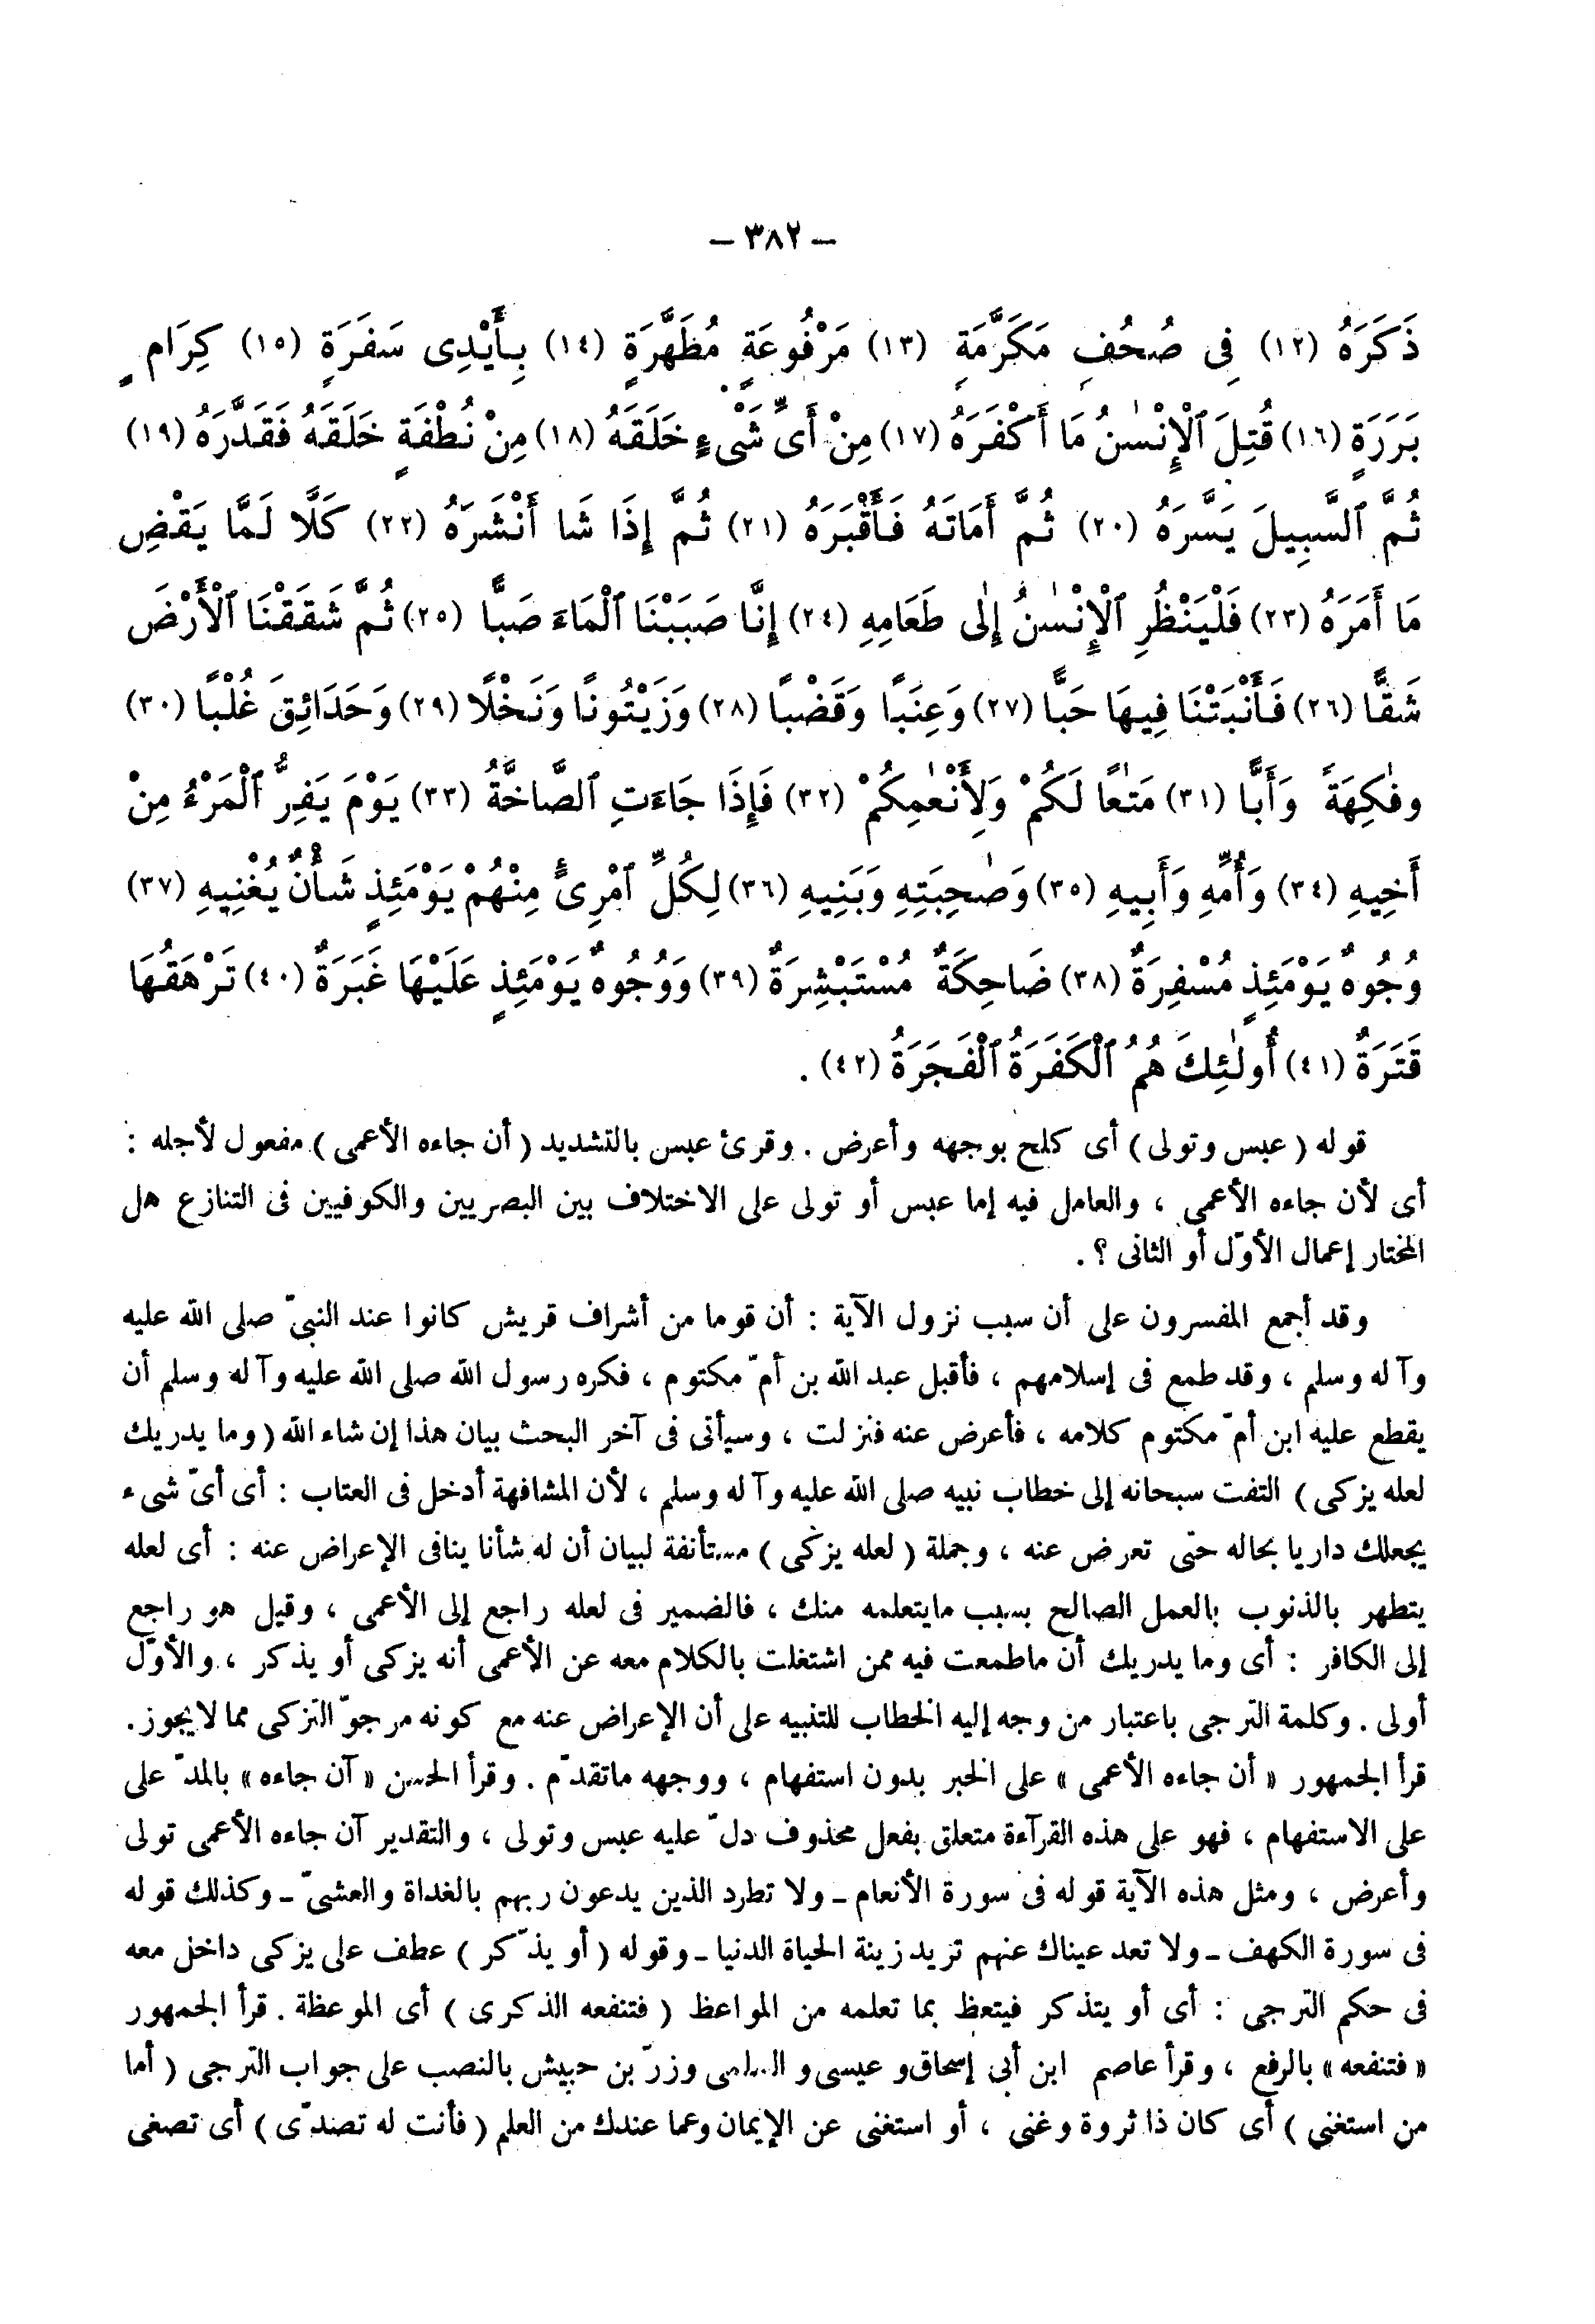 – ٣٨٢ –
ذَكَرَهُ (١٢) فِى صُحُفٍ مُكَرَّمَةٍ (١٣) مَرْفُوعَةٍ مُطَهَّرَةٍ (١٤) بِأَيْدِى سَفَرَةٍ (١٥) كِرَامٍ
بَرَرَةٍ (١٦) قُتِلَ ٱلْإِنْسٰنُ مَا أَكْفَرَهُ (١٧) مِنْ أَىِّ شَىْءٍ خَلَقَهُ (١٨) مِنْ نُطْفَةٍ خَلَقَهُ فَقَدَّرَهُ (١٩)
ثُمَّ ٱلسَّبِيلَ يَسَّرَهُ (٢٠) ثُمَّ أَمَاتَهُ فَأَقْبَرَهُ (٢١) ثُمَّ إِذَا شَا أَنْشَرَهُ (٢٢) كَلَّا لَمَّا يَقْضِ
مَا أَمَرَهُ (٢٣) فَلْيَنْظُرِ ٱلْإِنْسٰنُ إِلٰى طَعَامِهِ (٢٤) إِنَّا صَبَبْنَا ٱلْمَاءَ صَبًّا (٢٥) ثُمَّ شَقَقْنَا ٱلْأَرْضَ
شَقًّا (٢٦) فَأَنْبَتْنَا فِيهَا حَبًّا (٢٧) وَعِنَبًا وَقَضْبًا (٢٨) وَزَيْتُونًا وَنَخْلًا (٢٩) وَحَدَائِقَ غُلْبًا (٣٠)
وفٰكِهَةً وَأَبًّا (٣١) مَتٰعًا لَكُمْ وَلِأَنْعٰمِكُمْ (٣٢) فَإِذَا جَاءَتِ ٱلصَّاخَّةُ (٣٣) يَوْمَ يَفِرُّ ٱلْمَرْءُ مِنْ
أَخِيهِ (٣٤) وَأُمِّهِ وَأَبِيهِ (٣٥) وَصٰحِبَتِهِ وَبَنِيهِ (٣٦) لِكُلِّ ٱمْرِئٍ مِنْهُمْ يَوْمَئِذٍ شَأْنٌ يُغْنِيهِ (٣٧)
وُجُوهٌ يَوْمَئِذٍ مُسْفِرَةٌ (٣٨) ضَاحِكَةٌ مُسْتَبْشِرَةٌ (٣٩) وَوُجُوهٌ يَوْمَئِذٍ عَلَيْهَا غَبَرَةٌ (٤٠) تَرْهَقُهَا
قَتَرَةٌ (٤١) أُولٰئِكَ هُمُ ٱلْكَفَرَةُ ٱلْفَجَرَةُ (٤٢) .
قوله ( عبس وتولى ) أى كلح بوجهه وأعرض . وقرئ عبس بالتشديد ( أن جاءه الأعمى ) مفعول لأجله :
أى لأن جاءه الأعمى ، والعامل فيه إما عبس أو تولى على الاختلاف بين البصريين والكوفيين فى التنازع هل
المختار إعمال الأوّل أو الثانى ؟ .
وقد أجمع المفسرون على أن سبب نزول الآية : أن قوما من أشراف قريش كانوا عند النبىّ صلى الله عليه
وآ له وسلم ، وقد طمع فى إسلامهم ، فأقبل عبد الله بن أمّ مكتوم ، فكره رسول الله صلى الله عليه وآ له وسلم أن
يقطع عليه ابن أمّ مكتوم كلامه ، فأعرض عنه فنزلت ، وسيأتى فى آخر البحث بيان هذا إن شاء الله ( وما يدريك
لعله يزكى ) التفت سبحانه إلى خطاب نبيه صلى الله عليه وآ له وسلم ، لأن المشافهة أدخل فى العتاب : أى أىّ شىء
يجعلك داريا بحاله حتى تعرض عنه ، وجملة ( لعله يزكى ) مستأنفة لبيان أن له شأنا ينافى الإعراض عنه : أى لعله
يتطهر بالذنوب بالعمل الصالح بسبب مايتعلمه منك ، فالضمير فى لعله راجع إلى الأعمى ، وقيل هو راجع
إلى الكافر : أى وما يدريك أن ماطمعت فيه ممن اشتغلت بالكلام معه عن الأعمى أنه يزكى أو يذكر ، والأوّل
أولى . وكلمة الترجى باعتبار من وجه إليه الخطاب للتنبيه على أن الإعراض عنه مع كونه مرجوّ التزكى مما لايجوز.
قرأ الجمهور « أن جاءه الأعمى » على الخبر بدون استفهام ، ووجهه ماتقدّم . وقرأ الحسن « آن جاءه » بالمدّ على
على الاستفهام ، فهو على هذه القرآءة متعلق بفعل محذوف دلّ عليه عبس وتولى ، والتقدير آن جاءه الأعمى تولى
وأعرض ، ومثل هذه الآية قوله فى سورة الأنعام ـ ولا تطرد الذين يدعون ربهم بالغداة والعشىّ ـ وكذلك قوله
فى سورة الكهف ـ ولا تعد عيناك عنهم تريد زينة الحياة الدنيا ـ وقوله ( أو يذّكر ) عطف على يزكى داخل معه
فى حكم الترجى : أى أو يتذكر فيتعظ بما تعلمه من المواعظ ( فتنفعه الذكرى ) أى الموعظة . قرأ الجمهور
« فتنفعه » بالرفع ، وقرأ عاصم ابن أبى إسحاق و عيسى و السلمى وزرّ بن حبيش بالنصب على جواب الترجى ( أما
من استغنى ) أى كان ذا ثروة وغنى ، أو استغنى عن الإيمان وعما عندك من العلم ( فأنت له تصدّى ) أى تصغى